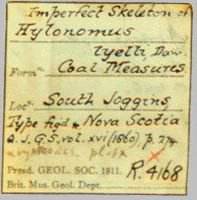 Imperfect Skeleton of
Hylonomus
lyelli Daw.
Form<sup>n</sup> Coal Measures
Loc<sup>y</sup> South Joggins
Nova Scotia
Type fig<sup>d</sup>
Q.J.G.S, vol. xvi (1860) p. 274
Presd. GEOL. SOC. 1911.
Brit. Mus. Geol. Dept.
R.4168